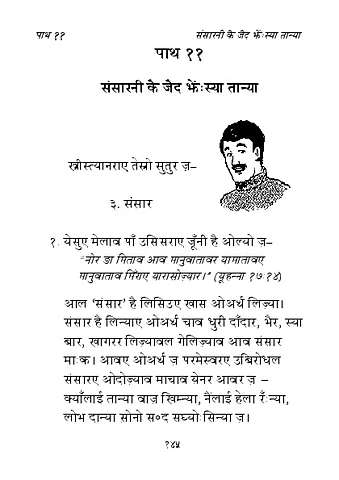 पाथ ११
संसारनी कै जैद झेंःस्या तान्या
पाथ ११
संसारनी कै जैद झेंःस्या तान्या
ख्रीस्त्यानराए तेस्रो सुतुर ज़–
३. संसार
१. येसुए मेलाव पाँ उसिसराए जूँनी है ओल्यो ज़–
"नोर ङा मिताव आव मानुवातावर यामातावए
मानुवाताव मिँराए यारासोज़्यार।" (यूहन्ना १७:१४)
आल 'संसार' है लिसिउए ख़ास ओअर्थ लिज़्या।
संसार है लिन्याए ओअर्थ चाव धुरी दाँदार, भैर, स्या
ब्रार, खागरर लिज़्यावल गेलिज़्याव आव संसार
माःक। आवए ओअर्थ ज़ परमेस्वरए उबिरोधल
संसारए ओदोज़्याव माचाव येनर आवर ज़ –
क्याँलाई तान्या वाज़ खिम्न्या, नैंलाई हेला रँःन्या,
लोभ दान्या सोनो स०द सघ्योःसिन्या ज़।
१४५